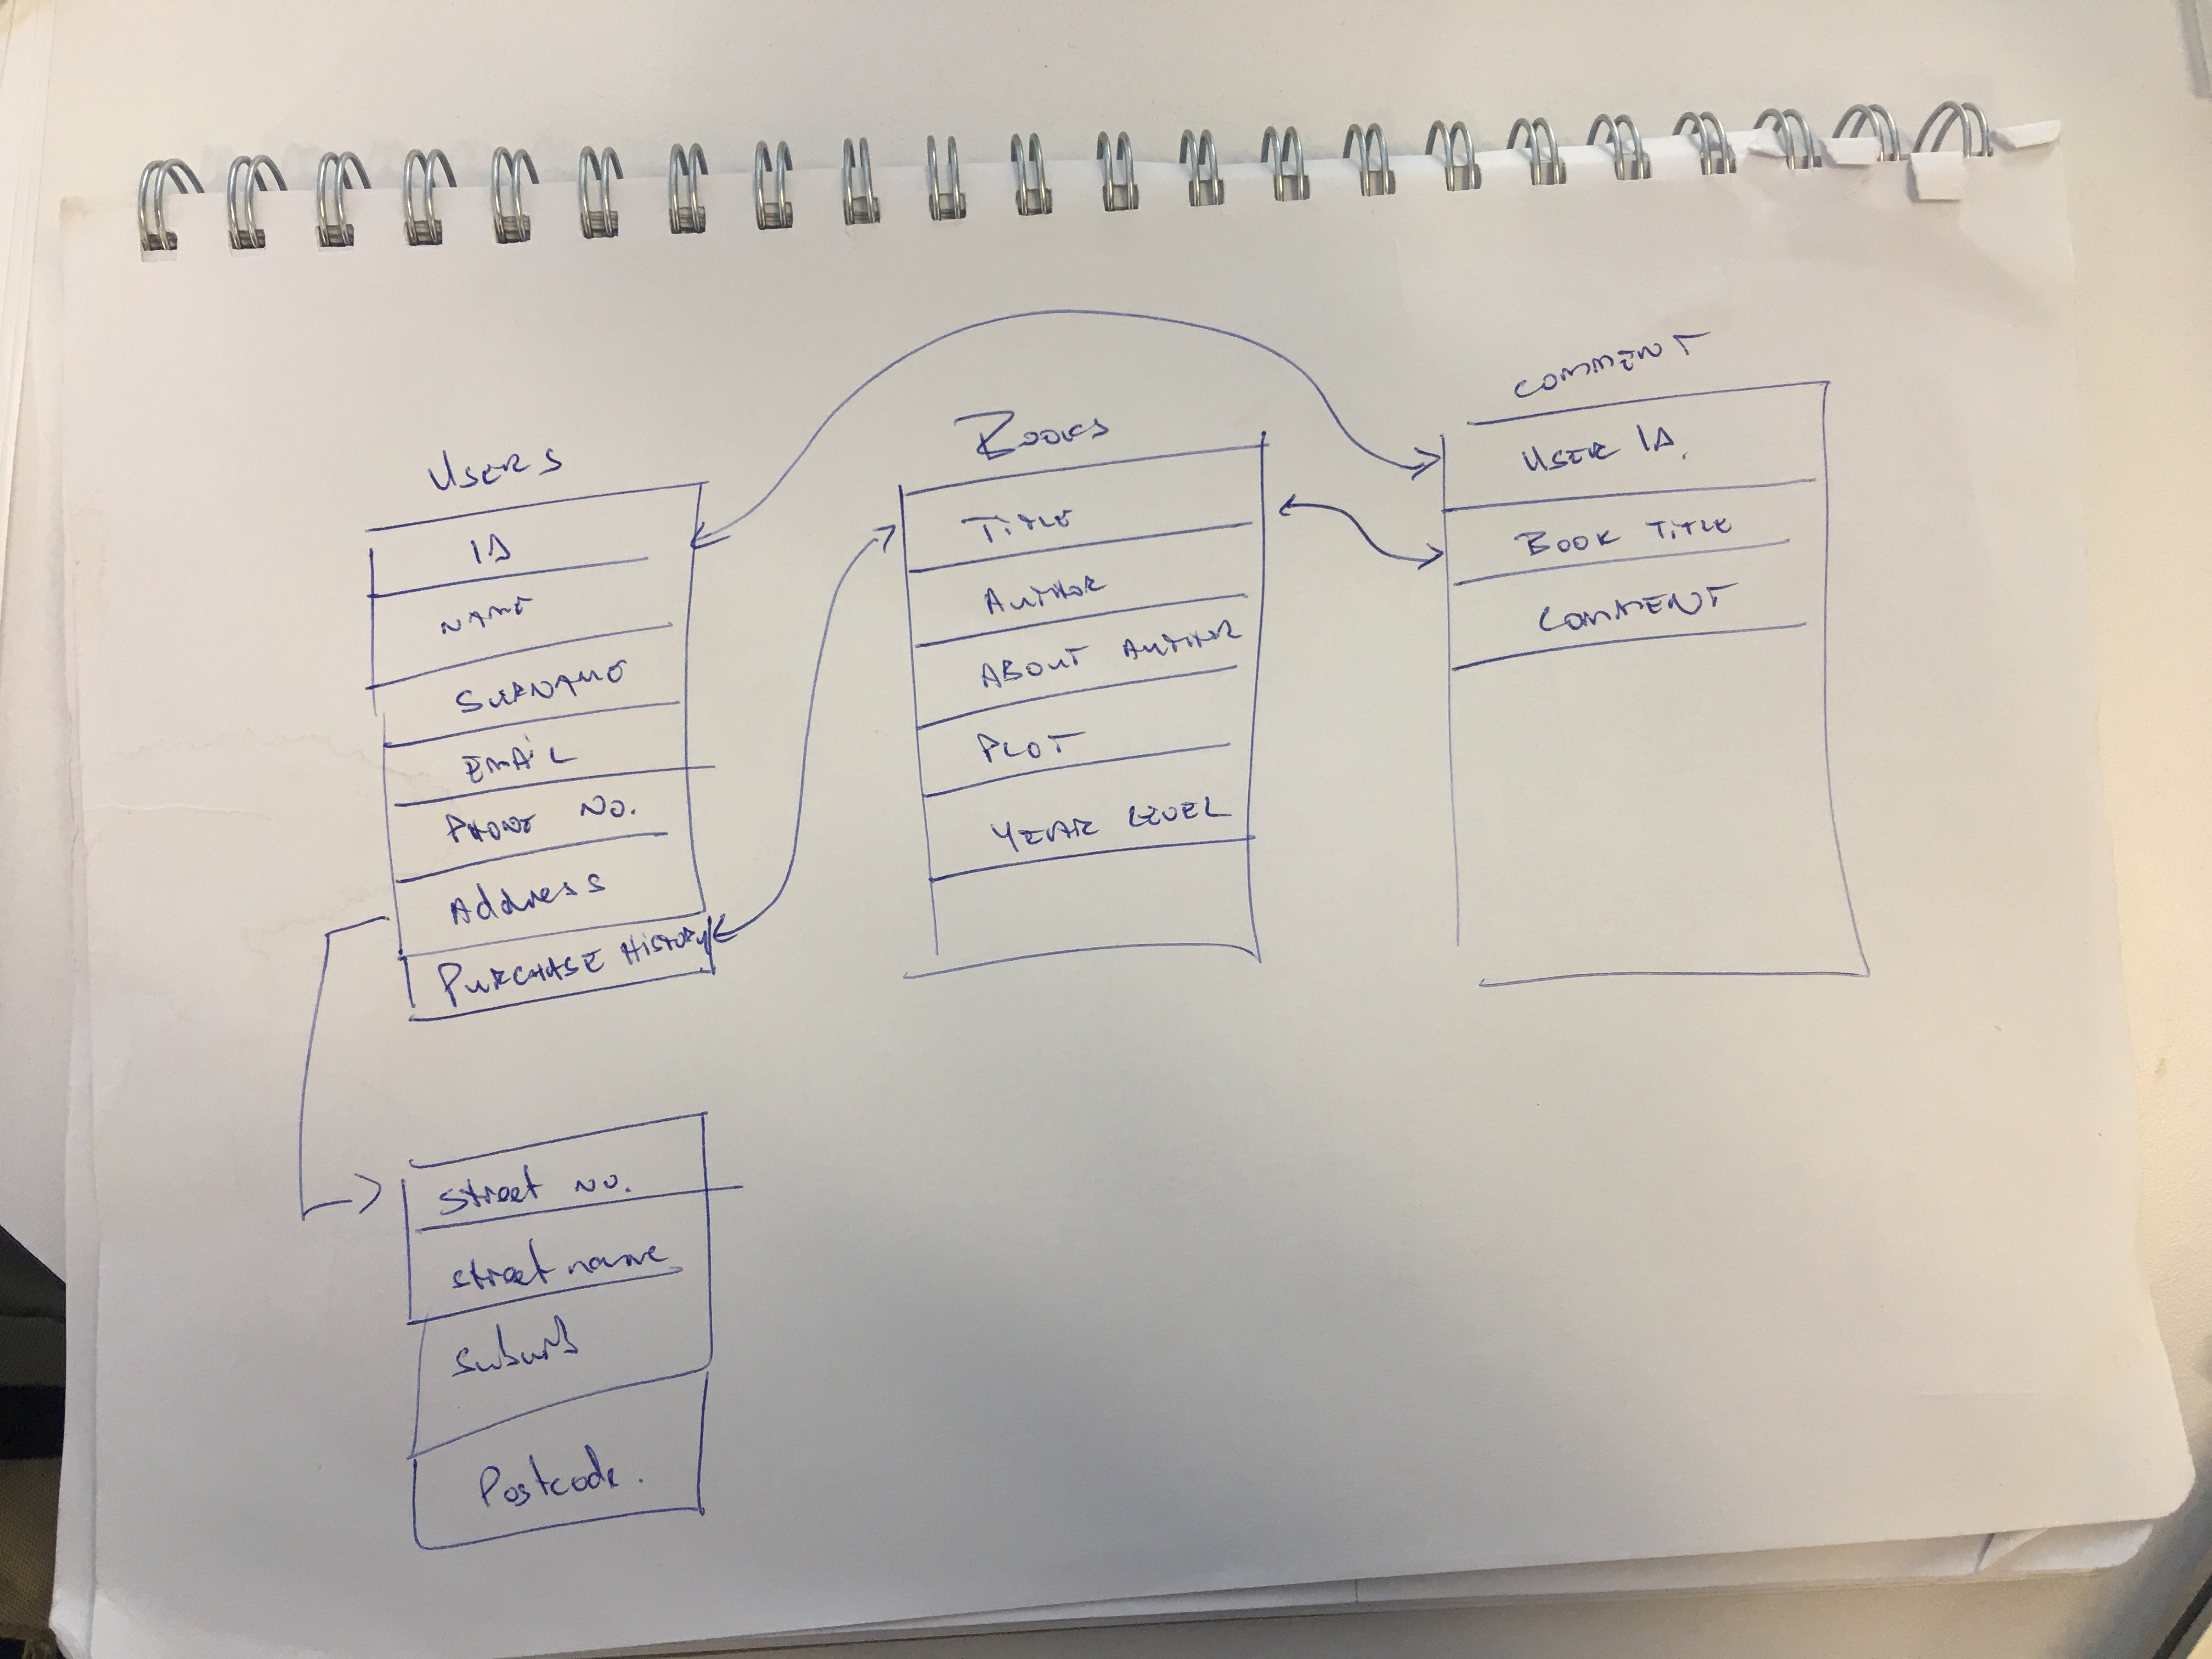 Users
ID
Name
Surname
Email
Phone No.
Address
Purchase History
Street No.
Street name
Suburb
Postcode.
Books
Title
Author
About Author
Plot
Year Level
Comment
User ID.
Book Title
Comment